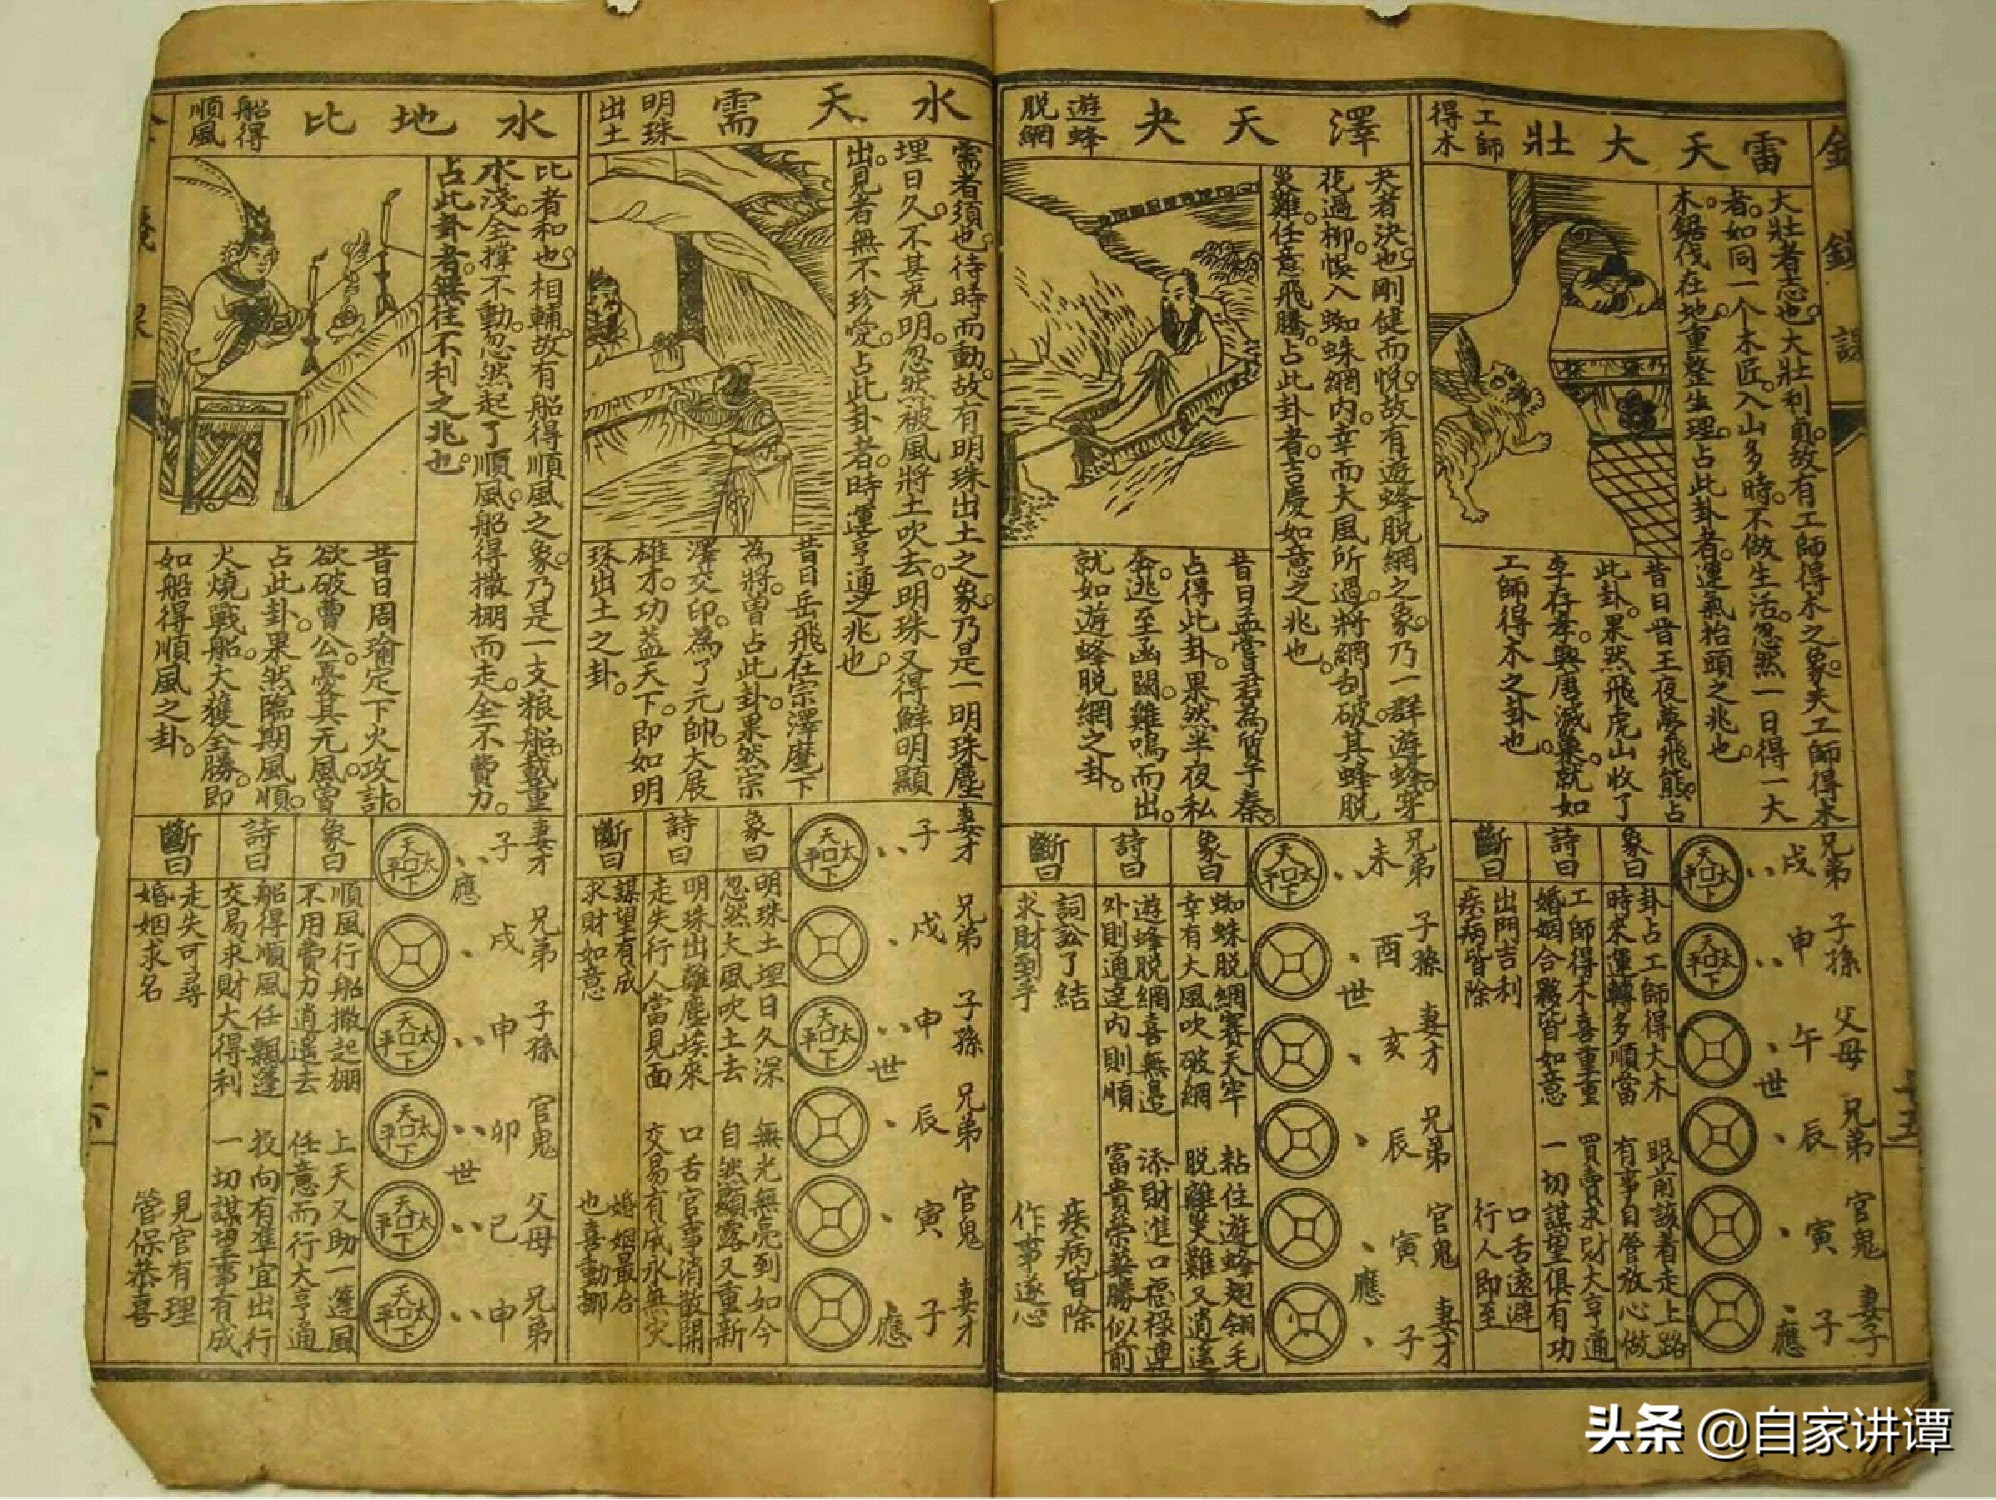 雷天大壯
工師
得木
大壯者志也大壯利貞故有工師得木之象夫工師得木
者如同一个木匠入山多時不做生活忽然一日得一大
木鋸伐在地重整生理占此卦者運氣抬頭之兆也
昔日晋王夜夢飛熊占
此卦果然飛虎山收了
李存孝興唐滅巢就如
工師得木之卦也
兄弟 子孫 父母 兄弟 官鬼 妻子
戌 申 午 辰 寅 子
世 應
天下太平
天下太平
象曰
卦占工師得大木 眼前該着走上路
時來運轉多順當 有事自管放心做
詩曰
工師得木喜重重 買賣求財大亨通
婚姻合夥皆如意 一切謀望俱有功
斷曰
出門吉利 口舌遠避
疾病皆除 行人即至
澤天夬
遊蜂
脫網
夬者決也剛健而悅故有遊蜂脫網之象乃一群遊蜂穿
花過柳悞入蜘蛛網內幸而大風所過將網刮破其蜂脫
災難任意飛騰占此卦者吉慶如意之兆也
昔日孟嘗君為質于秦
占得此卦果然半夜私
奔逃至函關雞鳴而出
就如遊蜂脫網之卦
兄弟 子孫 妻才 兄弟 官鬼 妻才
未 酉 亥 辰 寅 子
世 應
天下太平
象曰
蜘蛛脫網賽天牢 粘住遊蜂翅翎毛
幸有大風吹破網 脫離災難又逍遙
詩曰
遊蜂脫網喜無邊 添財進口福祿連
外則通達內則順 富貴榮華勝似前
斷曰
詞訟了結 疾病皆除
求財到手 作事遂心
水天需
明珠
出土
需者須也待時而動故有明珠出土之象乃是一明珠塵
埋日久不甚光明忽然被風將土吹去明珠又得鮮明顯
出見者無不珍愛占此卦者時運亨通之兆也
昔日岳飛在宗澤麾下
為將曾占此卦果然宗
澤交印為了元帥大展
雄才功蓋天下即如明
珠出土之卦
妻才 兄弟 子孫 兄弟 官鬼 妻才
子 戌 申 辰 寅 子
世 應
天下太平
天下太平
象曰
明珠土埋日久深 無光無亮到如今
忽然大風吹土去 自然顯露又重新
詩曰
明珠出離塵埃來 口舌官事消散開
走失行人當見面 交易有成永無災
斷曰
謀望有成 婚姻最合
求財如意 也喜動挪
水地比
船得
順風
比者和也相輔故有船得順風之象乃是一支粮船載重
水淺全撑不動忽然起了順風船得撒棚而走全不費力
占此卦者無往不利之兆也
昔日周瑜定下火攻計
欲破曹公憂其无風曾
占此卦果然臨期風順
火燒戰船大獲全勝即
如船得順風之卦
妻才 兄弟 子孫 官鬼 父母 兄弟
子 戌 申 卯 巳 申
應 世
天下太平
天下太平
天下太平
天下太平
天下太平
象曰
順風行船撒起棚 上天又助一蓬風
不用費力逍遙去 任意而行大亨通
詩曰
船得順風任飄蓬 投向有準宜出行
交易求財大得利 一切謀望事有成
斷曰
走失可尋 見官有理
婚姻求名 管保恭喜
头条 @自家讲谭